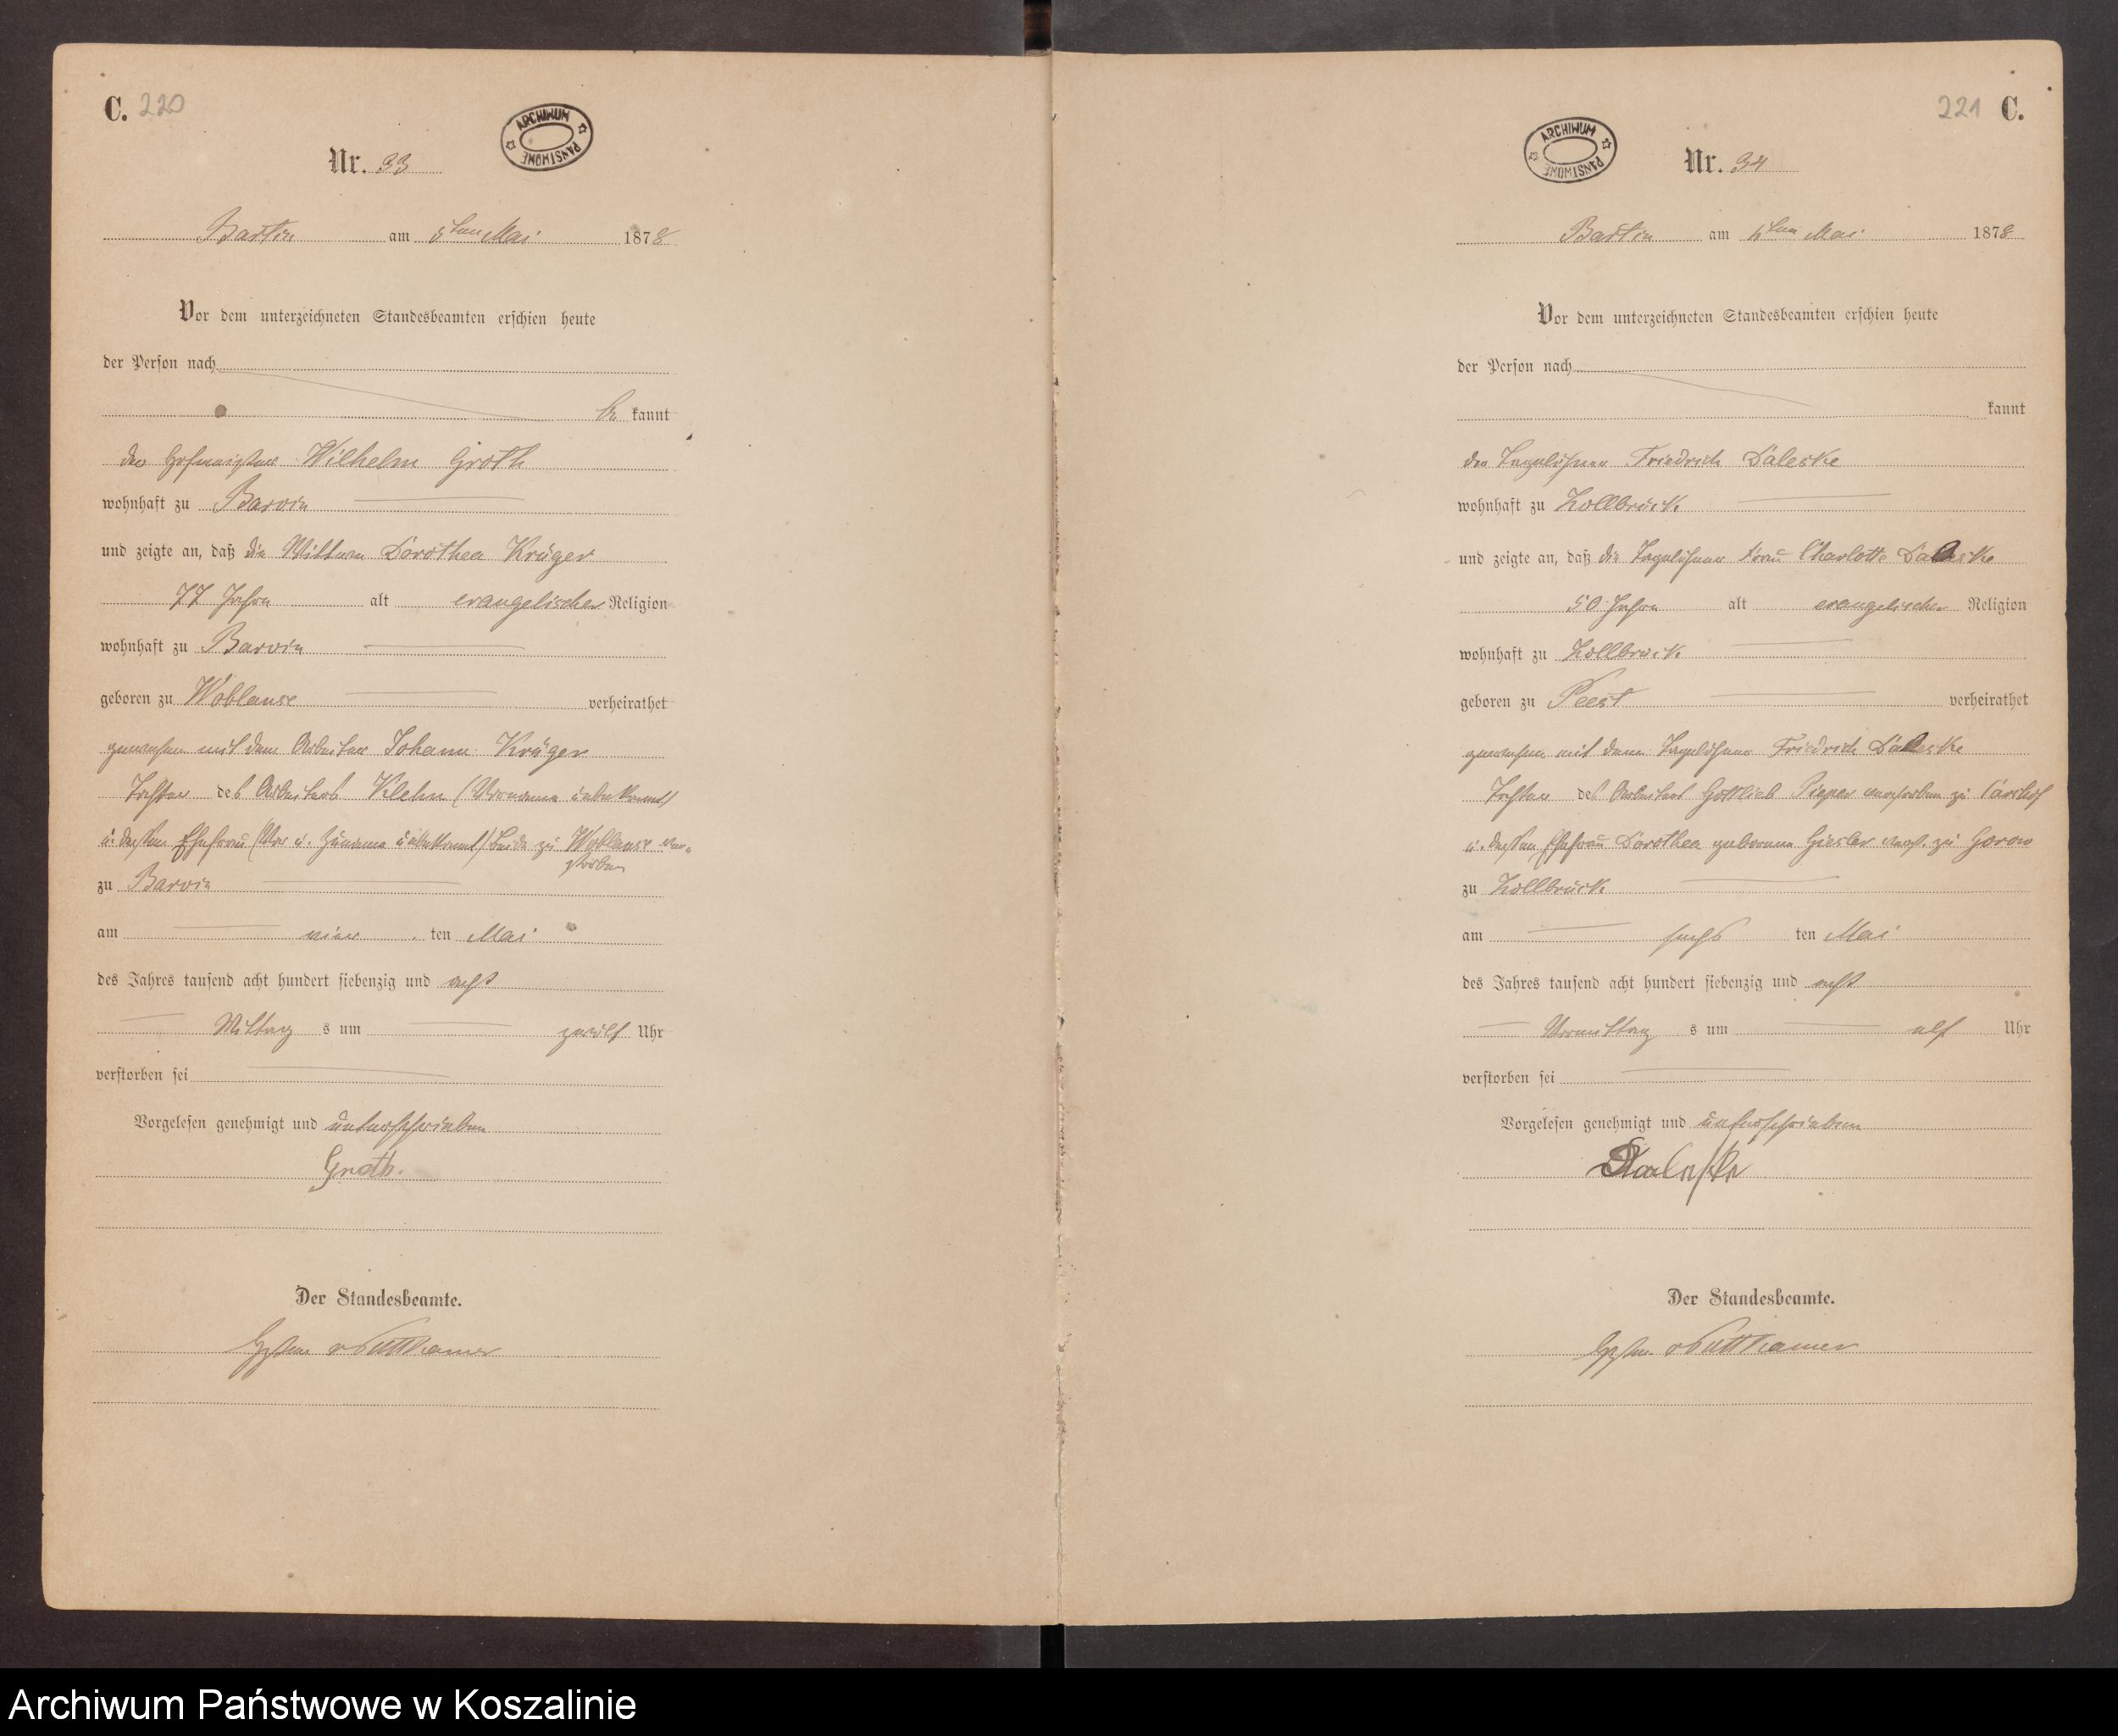 C. 220
ARCHIWUM PAŃSTWOWE
Nr. 33
Bartin am 5ten Mai 1878
Vor dem unterzeichneten Standesbeamten erschien heute
der Person nach
be kannt
der Hofmeister Wilhelm Groth
wohnhaft zu Barvin
und zeigte an, daß die Wittwe Dorothea Krüger
77 Jahre alt evangelischer Religion
wohnhaft zu Barvin
geboren zu Woblanse verheirathet
gewesen mit dem Arbeiter Johann Krüger
Tochter des Arbeiters Klehn (Vorname unbekannt)
u. dessen Ehefrau (Vor u. Zuname unbekannt) beide zu Woblanse ver-
storben
zu Barvin
am vier ten Mai
des Jahres tausend acht hundert siebenzig und acht
Mittag s um zwölf Uhr
verstorben sei
Vorgelesen genehmigt und unterschrieben
Groth.
Der Standesbeamte.
v Puttkamer
221 C.
ARCHIWUM PAŃSTWOWE
Nr. 34
Bartin am ten Mai 1878
Vor dem unterzeichneten Standesbeamten erschien heute
der Person nach
kannt
der Tagelöhner Friedrich Daleske
wohnhaft zu Zollbrück
und zeigte an, daß die Tagelöhner Frau Charlotte Daleske
50 Jahre alt evangelischer Religion
wohnhaft zu Zollbrück
geboren zu Peest verheirathet
gewesen mit dem Tagelöhner Friedrich Daleske
Tochter des Arbeiters Gottlieb Pieper verstorben zu
u. dessen Ehefrau Dorothea geborene Giesler verst. zu Gorow
zu Zollbrück
am sechs ten Mai
des Jahres tausend acht hundert siebenzig und acht
Vormittag s um elf Uhr
verstorben sei
Vorgelesen genehmigt und unterschrieben
Daleske
Der Standesbeamte.
v Puttkamer
Archiwum Państwowe w Koszalinie